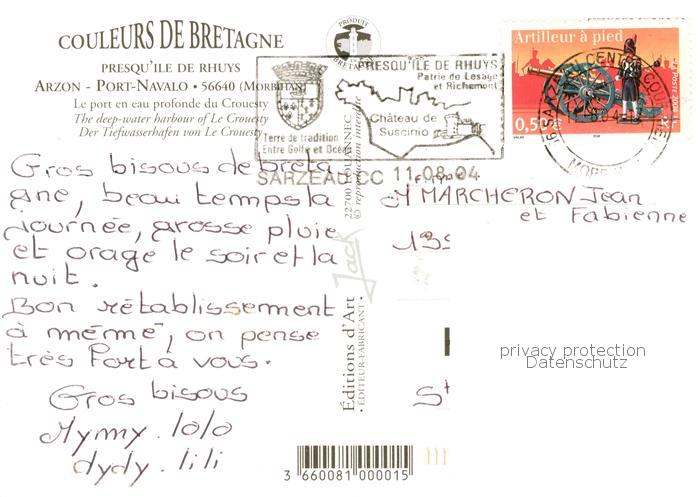 COULEURS DE BRETAGNE
PRESQU'ILE DE RHUYS
ARZON - PORT-NAVALO • 56640 (MORBIHAN)
Le port en eau profonde du Crouesty
The deep-water harbour of Le Crouesty
Der Tiefwasserhafen von Le Crouesty
PRODUIT
BRETAGNE
PRESQU'ÎLE DE RHUYS
Patrie de Lesage
et Richemont
Château de
Suscinio
Terre de tradition
Entre Golfe et Océan
SARZEAU CC 11-08-04
Artilleur à pied
0,50€
Gros bisous de breta
gne, beau temps la
journée, grosse pluie
et orage le soir et la
nuit.
Bon rétablissement
à mémé, on pense
très fort à vous.
Gros bisous
Mymmy. lolo
dydy. lili
22700 LOUANNEC
© reproduction interdite
Jack
Editions d'Art
• ÉDITEUR-FABRICANT •
MARCHERON Jean
et Fabienne
139
St
privacy protection
Datenschutz
3 660081 000015